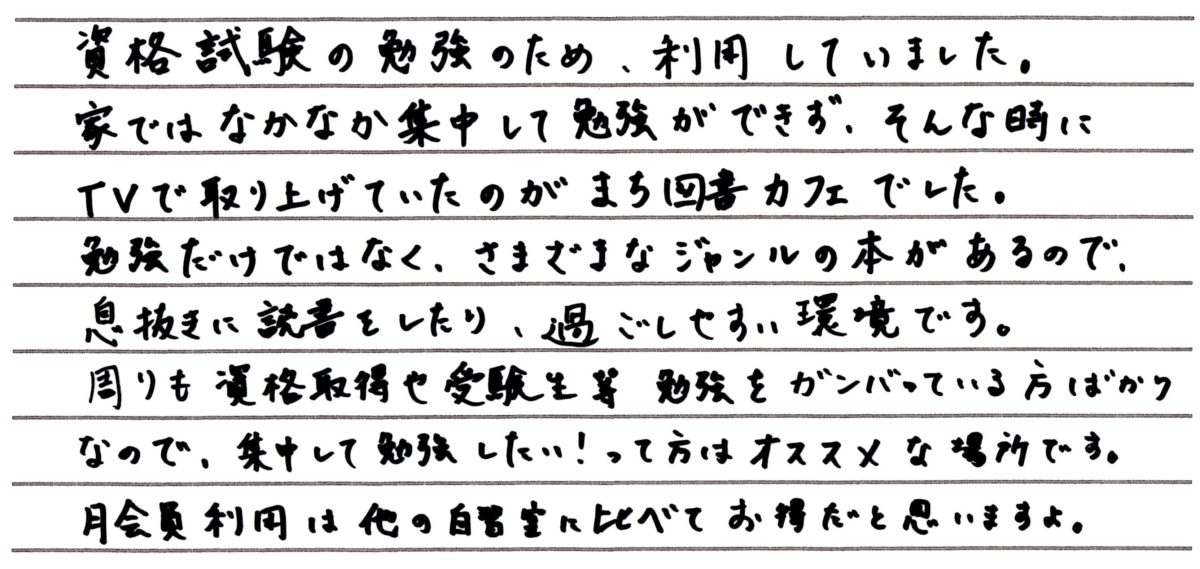 資格試験の勉強のため、利用していました。
家ではなかなか集中して勉強ができず、そんな時に
TVで取り上げていたのがまち図書カフェでした。
勉強だけではなく、さまざまなジャンルの本があるので、
息抜きに読書をしたり、過ごしやすい環境です。
周りも資格取得や受験生等 勉強をガンバっている方ばかり
なので、集中して勉強したい！って方はオススメな場所です。
月会員利用は他の自習室に比べてお得だと思いますよ。